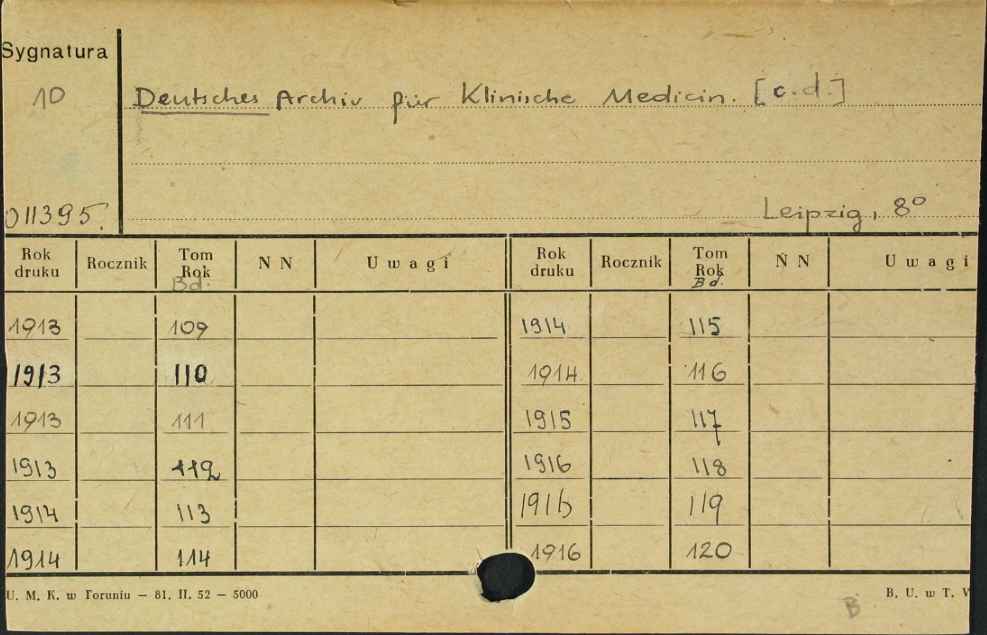 Sygnatura
10 Deutsches Archiv für Klinische Medicin. [c.d.]
011395. Leipzig, 8°
Rok druku Rocznik Tom Rok Bd. N N Uwagi Rok druku Rocznik Tom Rok Bd. N N Uwagi
1913 109 1914 115
1913 110 1914 116
1913 111 1915 117
1913 112 1916 118
1914 113 1916 119
1914 114 1916 120
U. M. K. w Toruniu — 81. II. 52 — 5000 B. U. w T. V
B